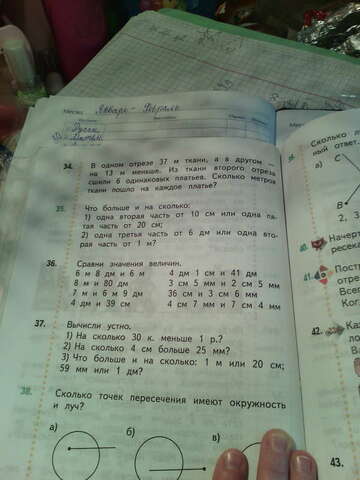 Месяц Январь - Февраль
34. В одном отрезе 37 м ткани, а в другом —
на 13 м меньше. Из ткани второго отреза
сшили 6 одинаковых платьев. Сколько метров
ткани пошло на каждое платье?
35. Что больше и на сколько:
1) одна вторая часть от 10 см или одна пя-
тая часть от 20 см;
2) одна третья часть от 6 дм или одна вто-
рая часть от 1 м?
36. Сравни значения величин.
6 м 8 дм и 6 м 4 дм 1 см и 41 дм
8 м и 80 дм 3 см 5 мм и 2 см 5 мм
7 м и 6 м 9 дм 36 см и 3 см 6 мм
4 дм и 39 см 4 см 7 мм и 7 см 4 мм
37. Вычисли устно.
1) На сколько 30 к. меньше 1 р.?
2) На сколько 4 см больше 25 мм?
3) Что больше и на сколько: 1 м или 20 см;
59 мм или 1 дм?
38. Сколько точек пересечения имеют окружность
и луч?
а) б) в)
Сколько
ный ответ.
а) С
В
2,
40. Начерт
ресек
41. Пост
отре
Всег
Ког
42.
ло
В
43.